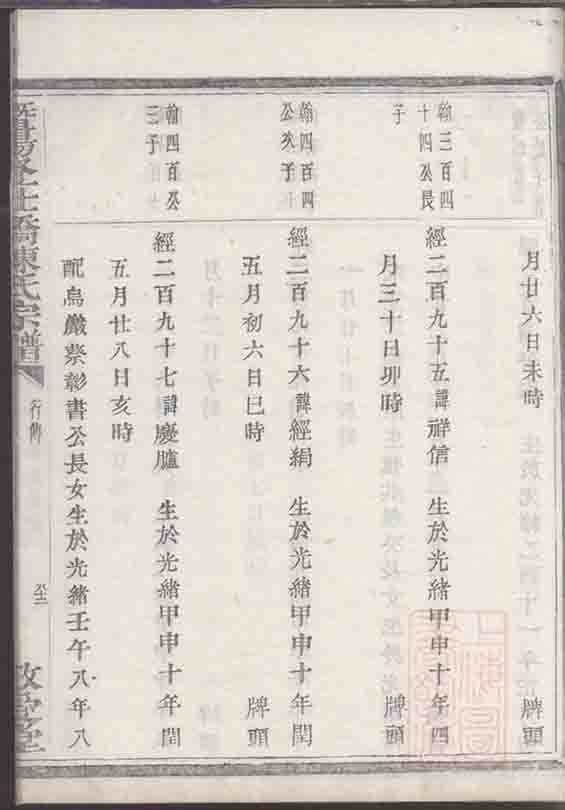 月廿六日未時 牌頭
翰三百四
十四公長
子
經二百九十五諱祥信 生於光緒甲申十年四
月三十日卯時 牌頭
翰四百四
公次子
經二百九十六諱經絹 生於光緒甲申十年閏
五月初六日巳時 牌頭
翰四百公
三子
經二百九十七諱慶臚 生於光緒甲申十年閏
五月廿八日亥時
配烏巖蔡彰書公長女生於光緒壬午八年八
橋陳氏宗譜
行傳